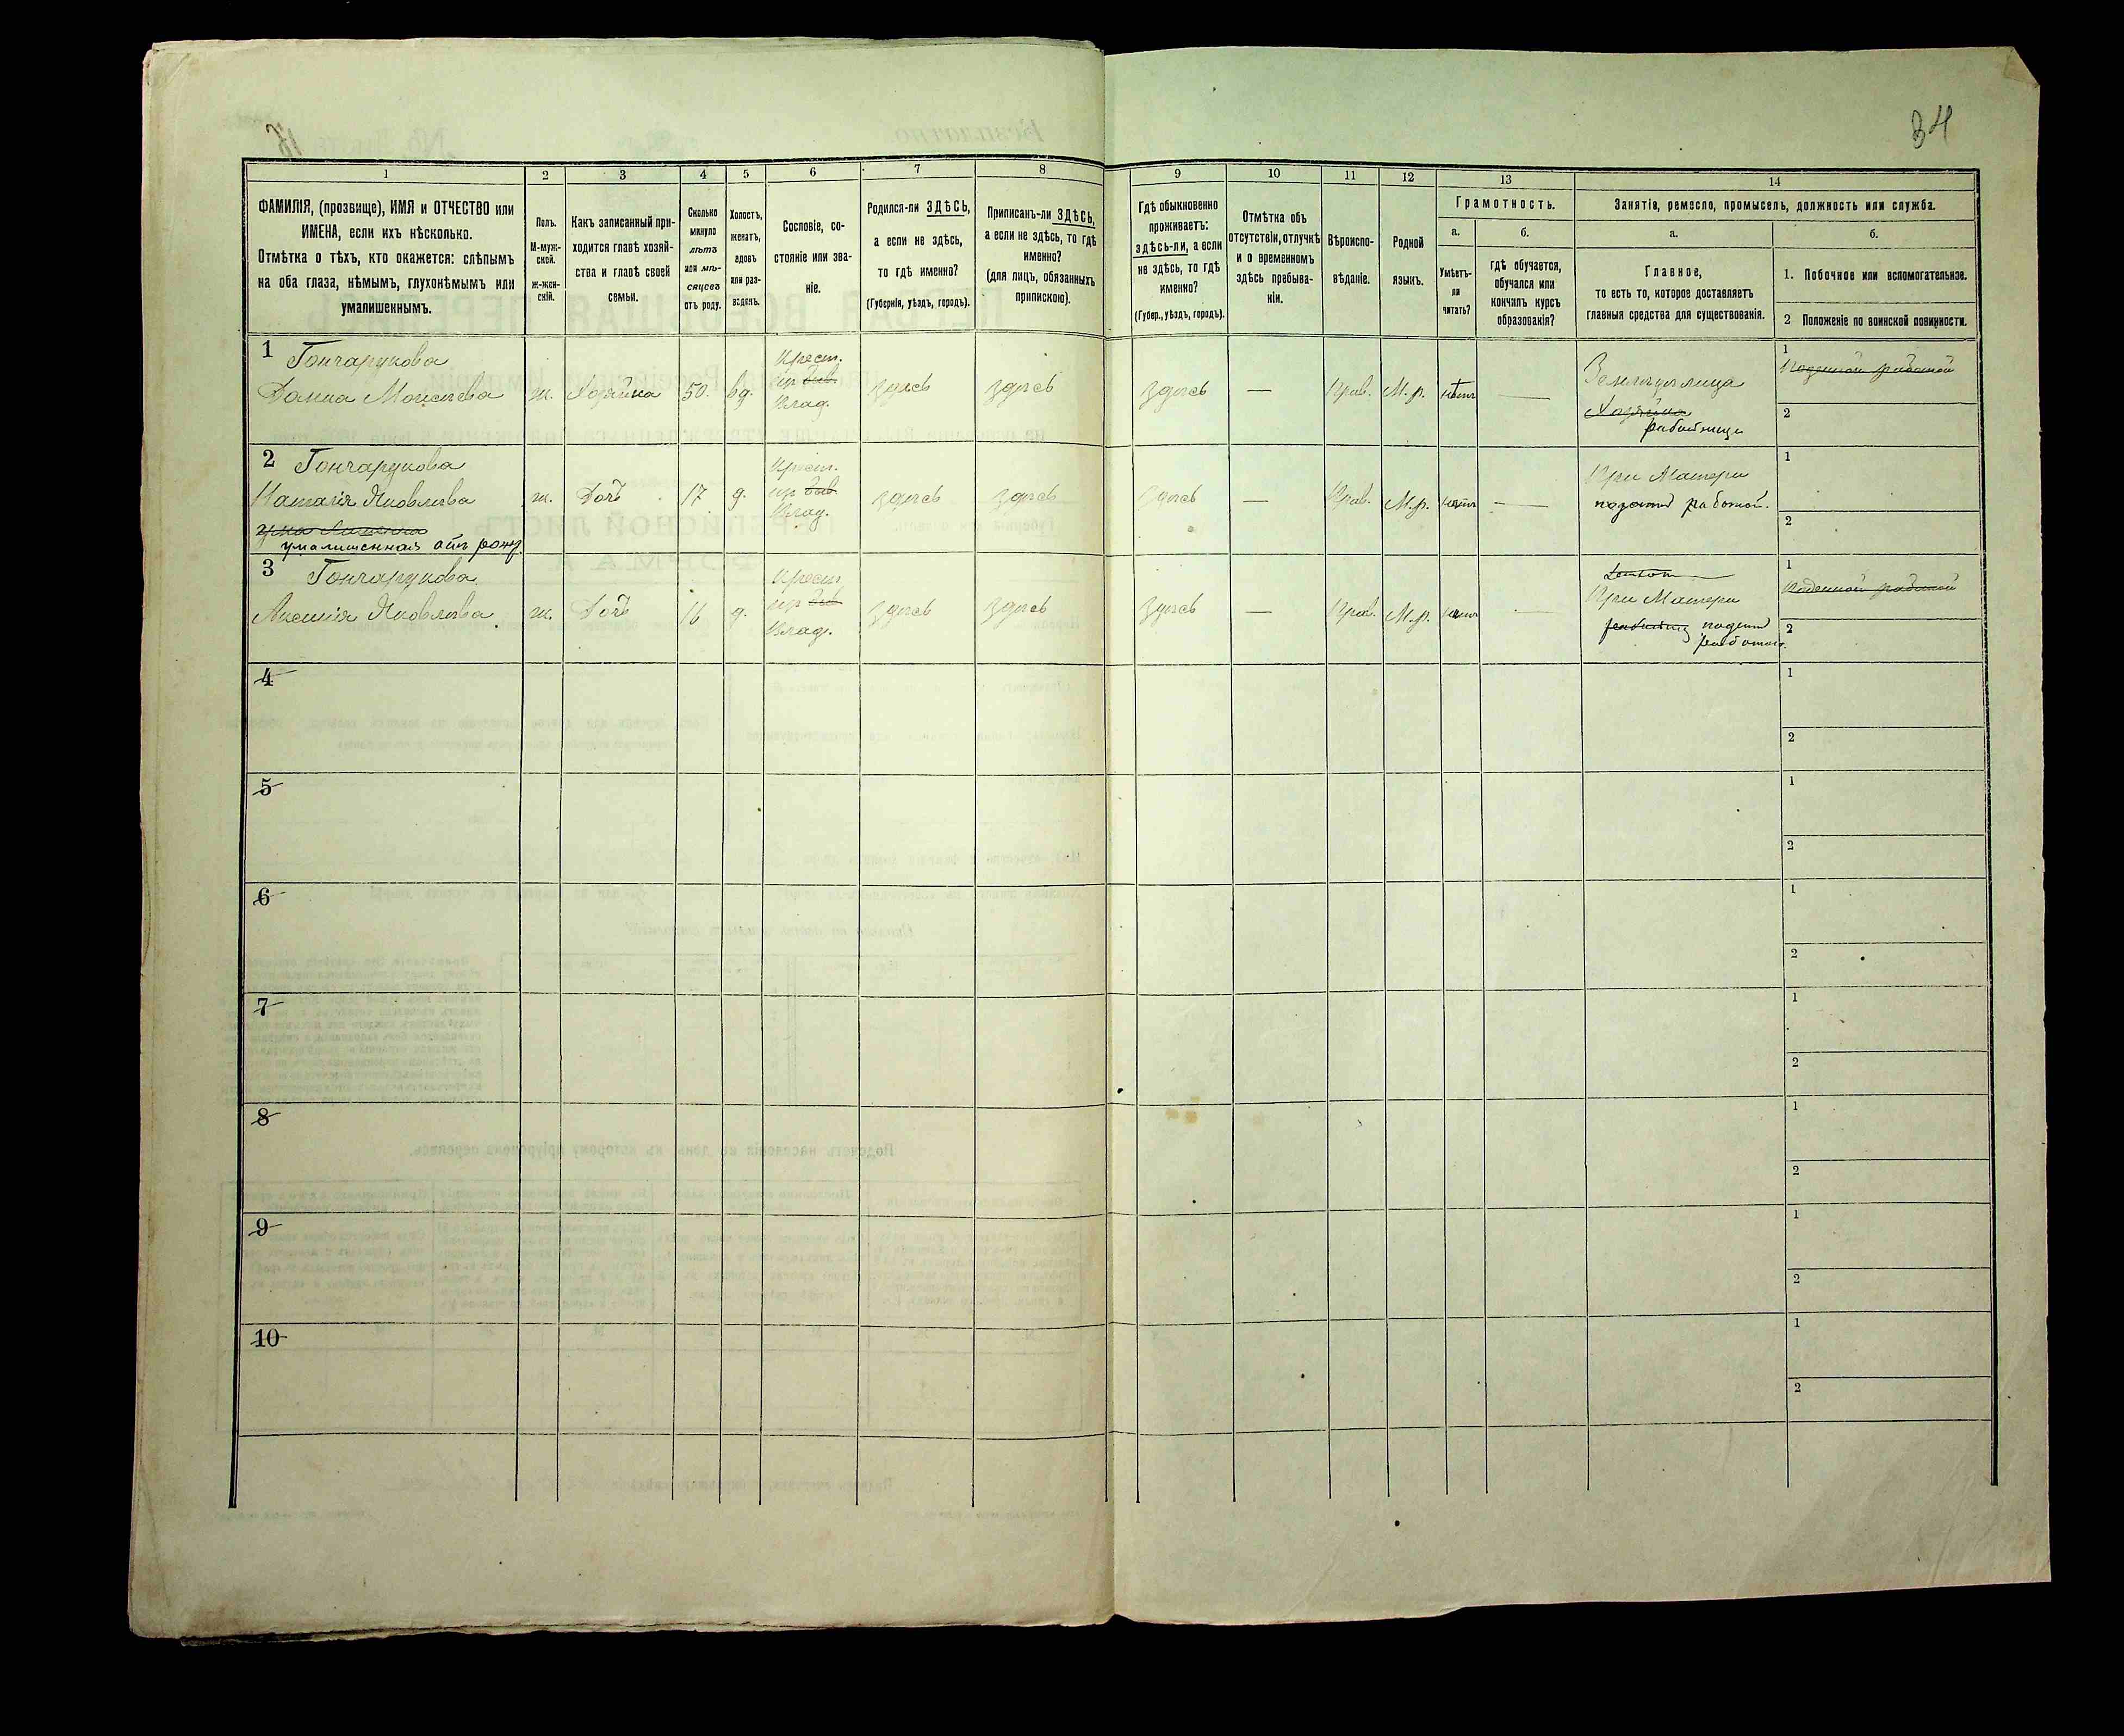 34
1
2
3
4
5
6
7
8
9
10
11
12
13
14
ФАМИЛІЯ, (прозвище), ИМЯ и ОТЧЕСТВО или
ИМЕНА, если ихъ нѣсколько.
Отмѣтка о тѣхъ, кто окажется: слѣпымъ
на оба глаза, нѣмымъ, глухонѣмымъ или
умалишеннымъ.
Полъ.
М-муж-
ской.
ж-жен-
скій.
Какъ записанный при-
ходится главѣ хозяй-
ства и главѣ своей
семьи.
Сколько
минуло
лѣтъ
или мѣ-
сяцевъ
отъ роду.
Холостъ,
женатъ,
вдовъ
или раз-
веденъ.
Сословіе, со-
стояніе или зва-
ніе.
Родился-ли ЗДѢСЬ,
а если не здѣсь,
то гдѣ именно?
(Губернія, уѣздъ, городъ).
Приписанъ-ли ЗДѢСЬ,
а если не здѣсь, то гдѣ
именно?
(для лицъ, обязанныхъ
припискою).
Гдѣ обыкновенно
проживаетъ:
здѣсь-ли, а если
не здѣсь, то гдѣ
именно?
(Губер., уѣздъ, городъ).
Отмѣтка объ
отсутствіи, отлучкѣ
и о временномъ
здѣсь пребыва-
ніи.
Вѣроиспо-
вѣданіе.
Родной
языкъ.
Грамотность.
а.
б.
Умѣетъ-
ли
читать?
гдѣ обучается,
обучался или
кончилъ курсъ
образованія?
Занятіе, ремесло, промыселъ, должность или служба.
а.
б.
Главное,
то есть то, которое доставляетъ
главныя средства для существованія.
1. Побочное или вспомогательное.
2 Положеніе по воинской повинности.
1 Гончарукова
Домна Моисеева
ж.
Хозяйка
50.
вд.
Крест.
быв.
Влад.
здѣсь
здѣсь
здѣсь
—
Прав.
М.р.
нѣтъ
—
Земледѣлица
Хозяйка
работница
1
Поденной работой
2
2 Гончарукова
Наталія Яковлева
умалишенная отъ роду
ж.
Дочь
17
д.
Крест.
быв.
Влад.
здѣсь
здѣсь
здѣсь
—
Прав.
М.р.
нѣтъ
—
При Матери
работой.
1
2
3 Гончарукова
Аксенія Яковлева
ж.
Дочь
16
д.
Крест.
быв.
Влад.
здѣсь
здѣсь
здѣсь
—
Прав.
М.р.
нѣтъ
—
При Матери
1
Поденной работой
2
4
1
2
5
1
2
6
1
2
7
1
2
8
1
2
9
1
2
10
1
2